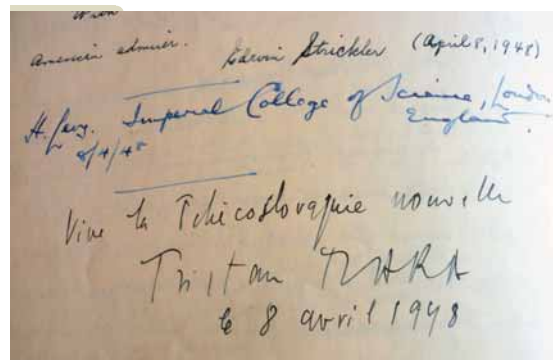 American admirer. Edwin Strickler (April 8, 1948)
H. Levy. Imperial College of Science, London
England.
8/4/48
Vive la Tchécoslovaquie nouvelle
Tristan TZARA
le 8 avril 1948